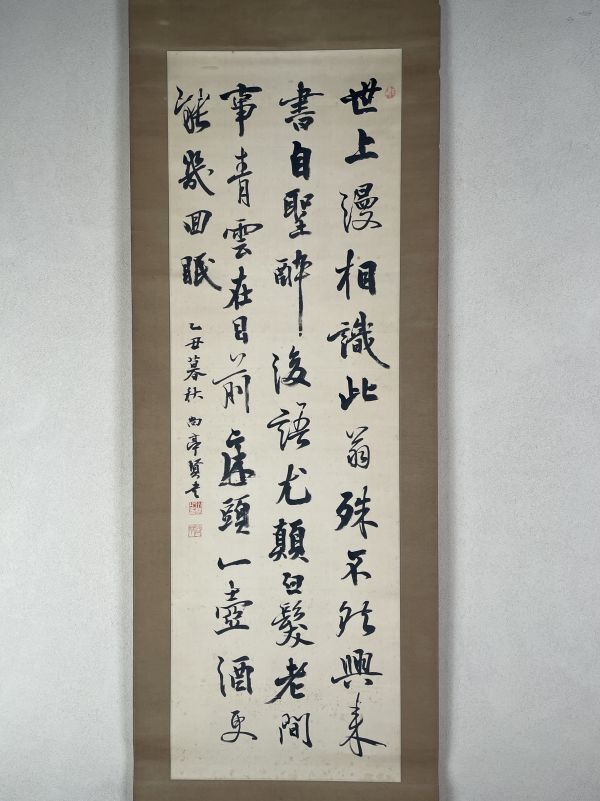 世上漫相識此翁殊不然興来
書自聖醉後語尤顛白髮老間
事青雲在目前床頭一壺酒更
能幾回眠
乙丑暮秋